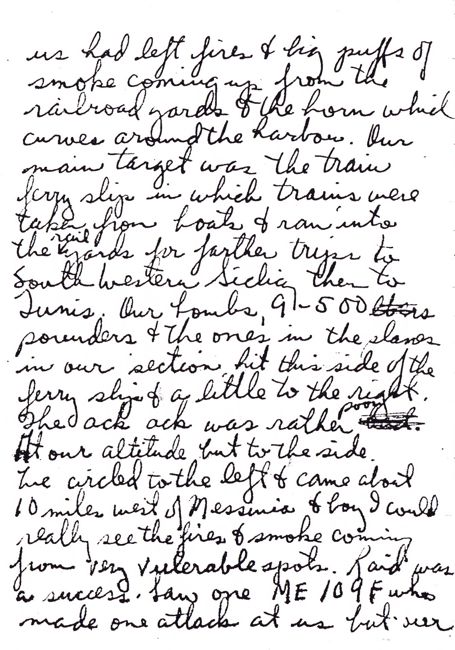 us had left fires & big puffs of
smoke coming up from the
railroad yards & the horn which
curves around the harbor. Our
main target was the train
ferry slip in which trains were
taken from boats & ran into
the rail yards for farther trips to
South western Siclia then to
Tunis. Our bombs, 9-500
pounders & the ones in the planes
in our section hit this side of the
ferry slip & a little to the right.
The ack ack was rather poor
At our altitude but to the side.
We circled to the left & came about
10 miles west of Messinia & boy I could
really see the fires & smoke coming
from very vulerable spots. Raid was
a success. Saw one ME 109F who
made one attack at us but